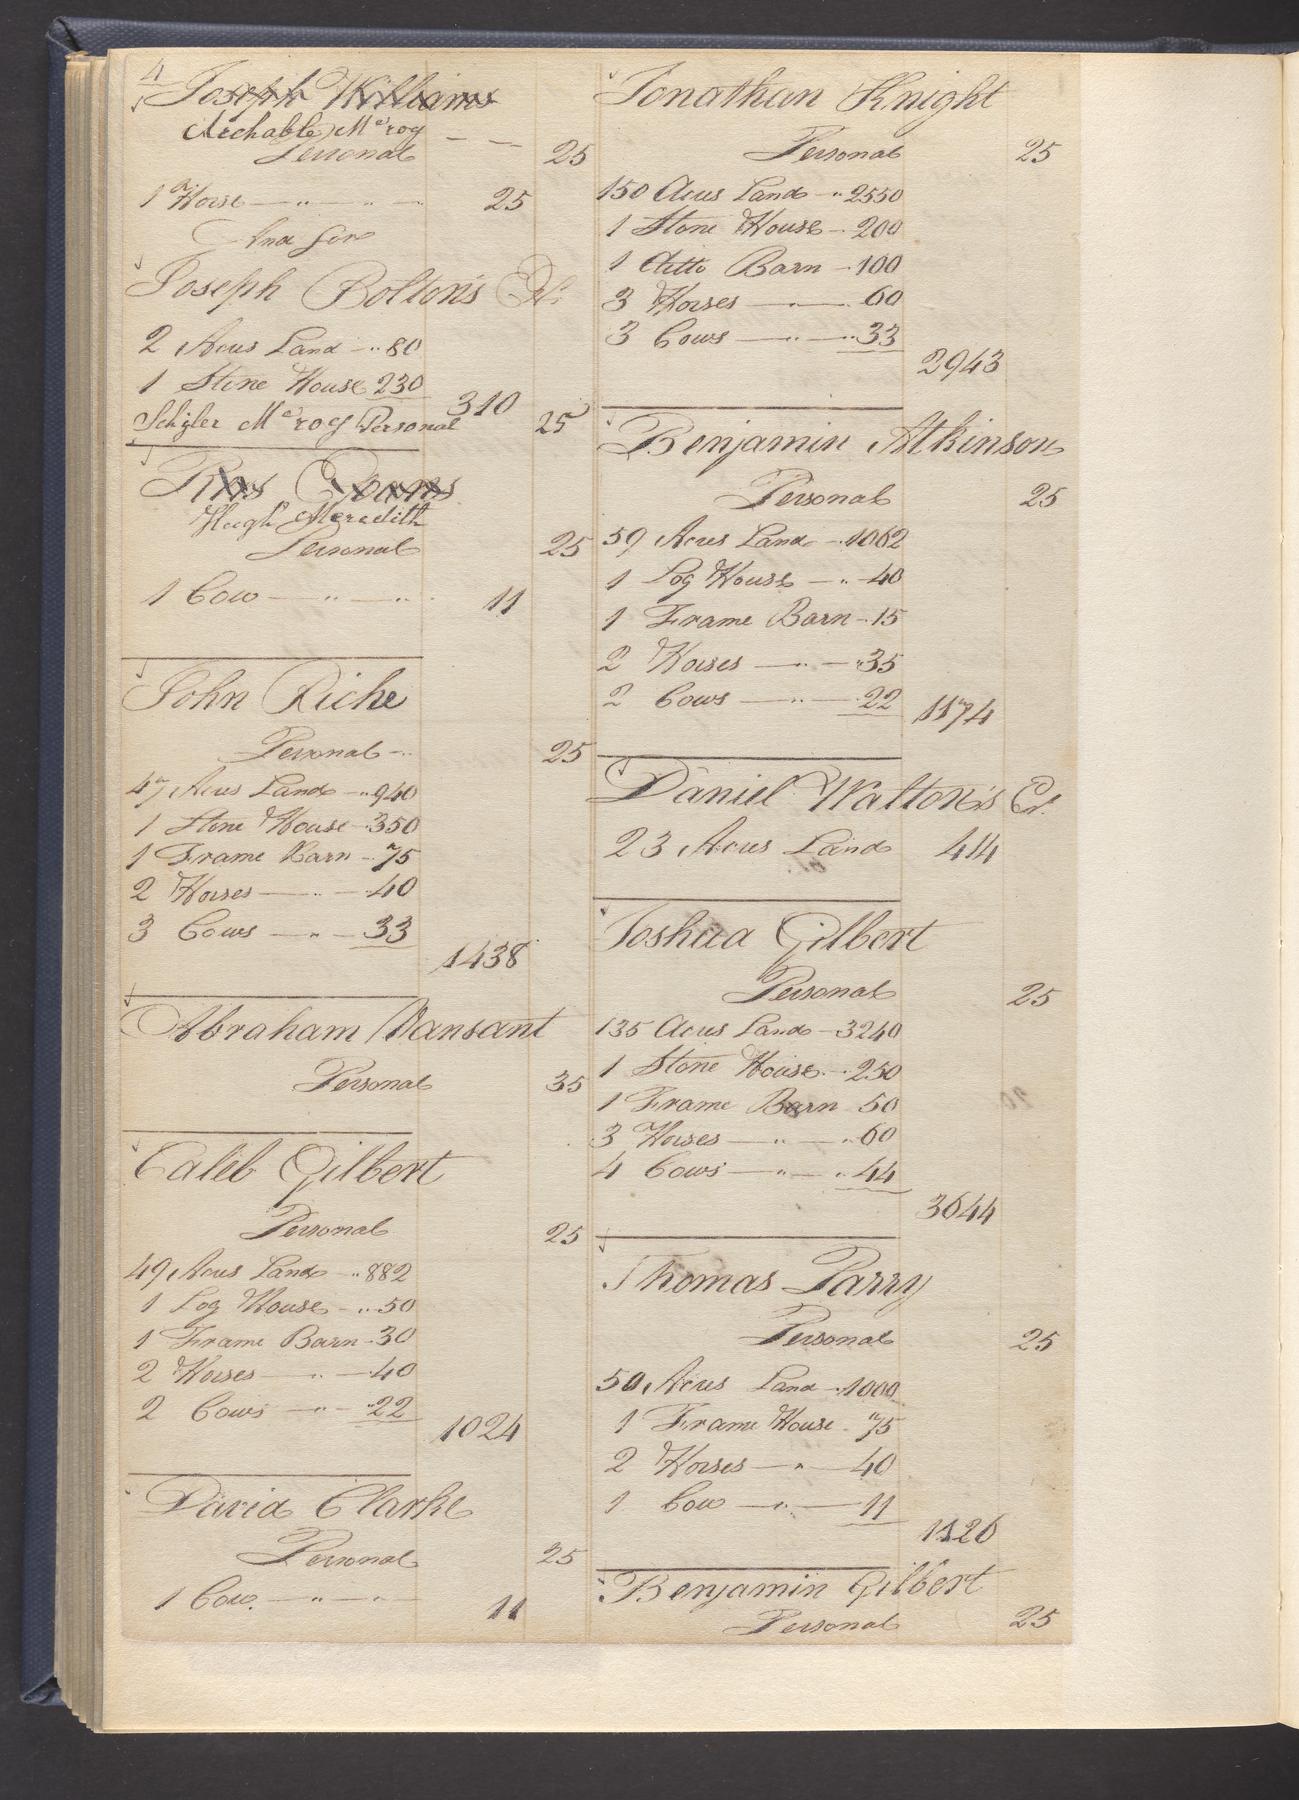 4
Joseph Williams
Archable Mc roy
Personal 25
1 Horse — " — " — 25
And for
Joseph Bolton's
2 Acres Land — " 80
1 Stone House 230
310
Schyler Mc roy Personal 25
Rees Evans
Hugh Meredith
Personal 25
1 Cow — " — " 11
John Riche
Personal — " 25
47 Acres Land — " 940
1 Stone House — 350
1 Frame Barn — 75
2 Horses — " — 40
3 Cows — " — 33
1438
Abraham Vansant
Personal 35
Caleb Gilbert
Personal 25
49 Acres Land — " 882
1 Log House — " 50
1 Frame Barn — 30
2 Horses — " — 40
2 Cows — " — 22
1024
David Clarke
Personal 25
1 Cow — " — " — 11
Jonathan Knight
Personal 25
150 Acres Land — " 2550
1 Stone House — 200
1 Ditto Barn — 100
3 Horses — " — 60
3 Cows — " — 33
2943
Benjamin Atkinson
Personal 25
59 Acres Land — 1062
1 Log House — " 40
1 Frame Barn — 15
2 Horses — " — 35
2 Cows — " — 22
1174
Daniel Walton's Et
23 Acres Land 414
Joshua Gilbert
Personal 25
135 Acres Land — 3240
1 Stone House — 250
1 Frame Barn 50
3 Horses — " — 60
4 Cows — " — 44
3644
Thomas Parry
Personal 25
50 Acres Land — 1000
1 Frame House — 75
2 Horses — " — 40
1 Cow — " — 11
1126
Benjamin Gilbert
Personal 25